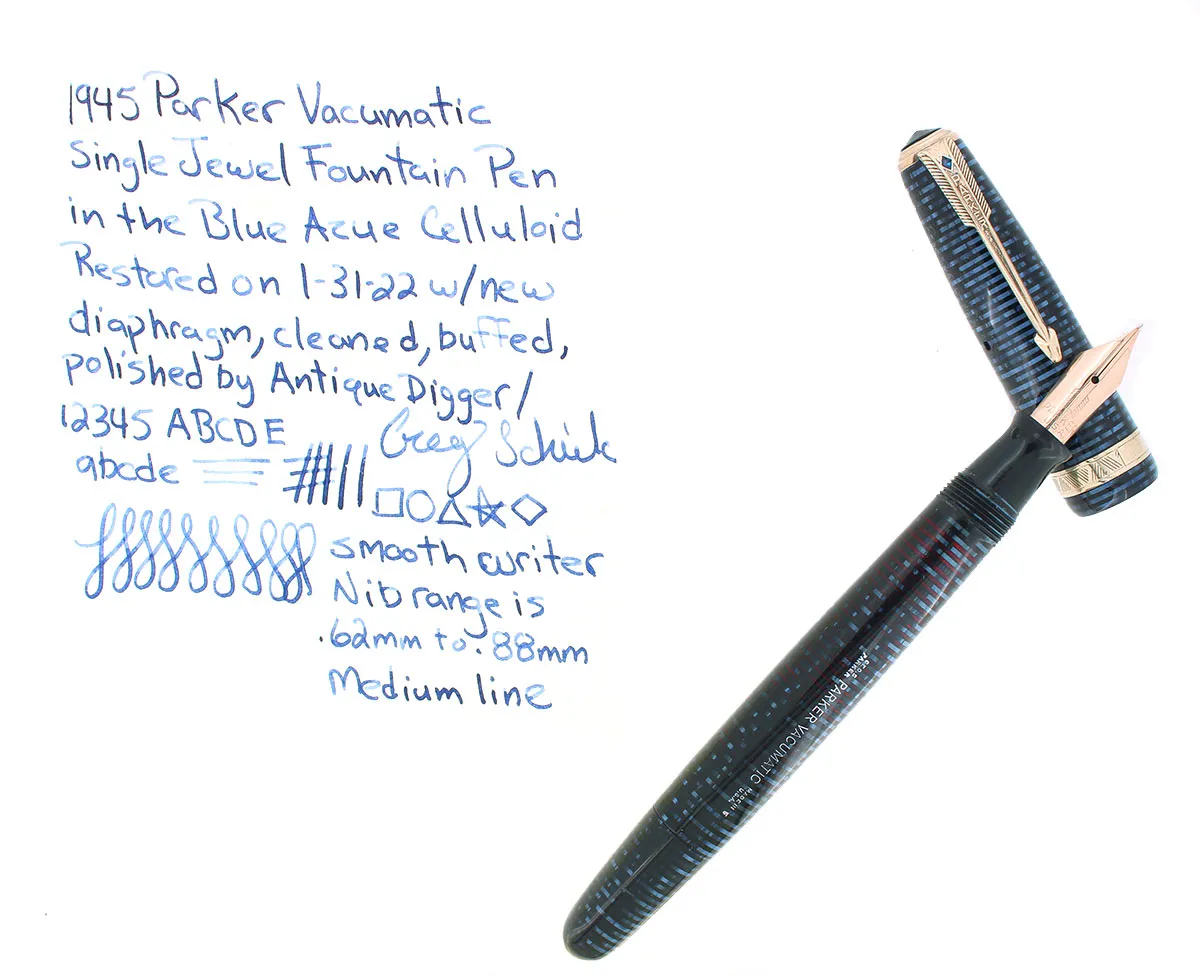 1945 Parker Vacumatic
Single Jewel Fountain Pen
in the Blue Azue Celluloid
Restored on 1-31-22 w/new
diaphragm, cleaned, buffed,
polished by Antique Digger/
12345 ABCDE
Greg Schick
abcde
smooth writer
Nib range is
.62mm to .88mm
Medium line
PARKER
GEO. S.
PARKER
PARKER VACUMATIC
MADE IN
U.S.A.